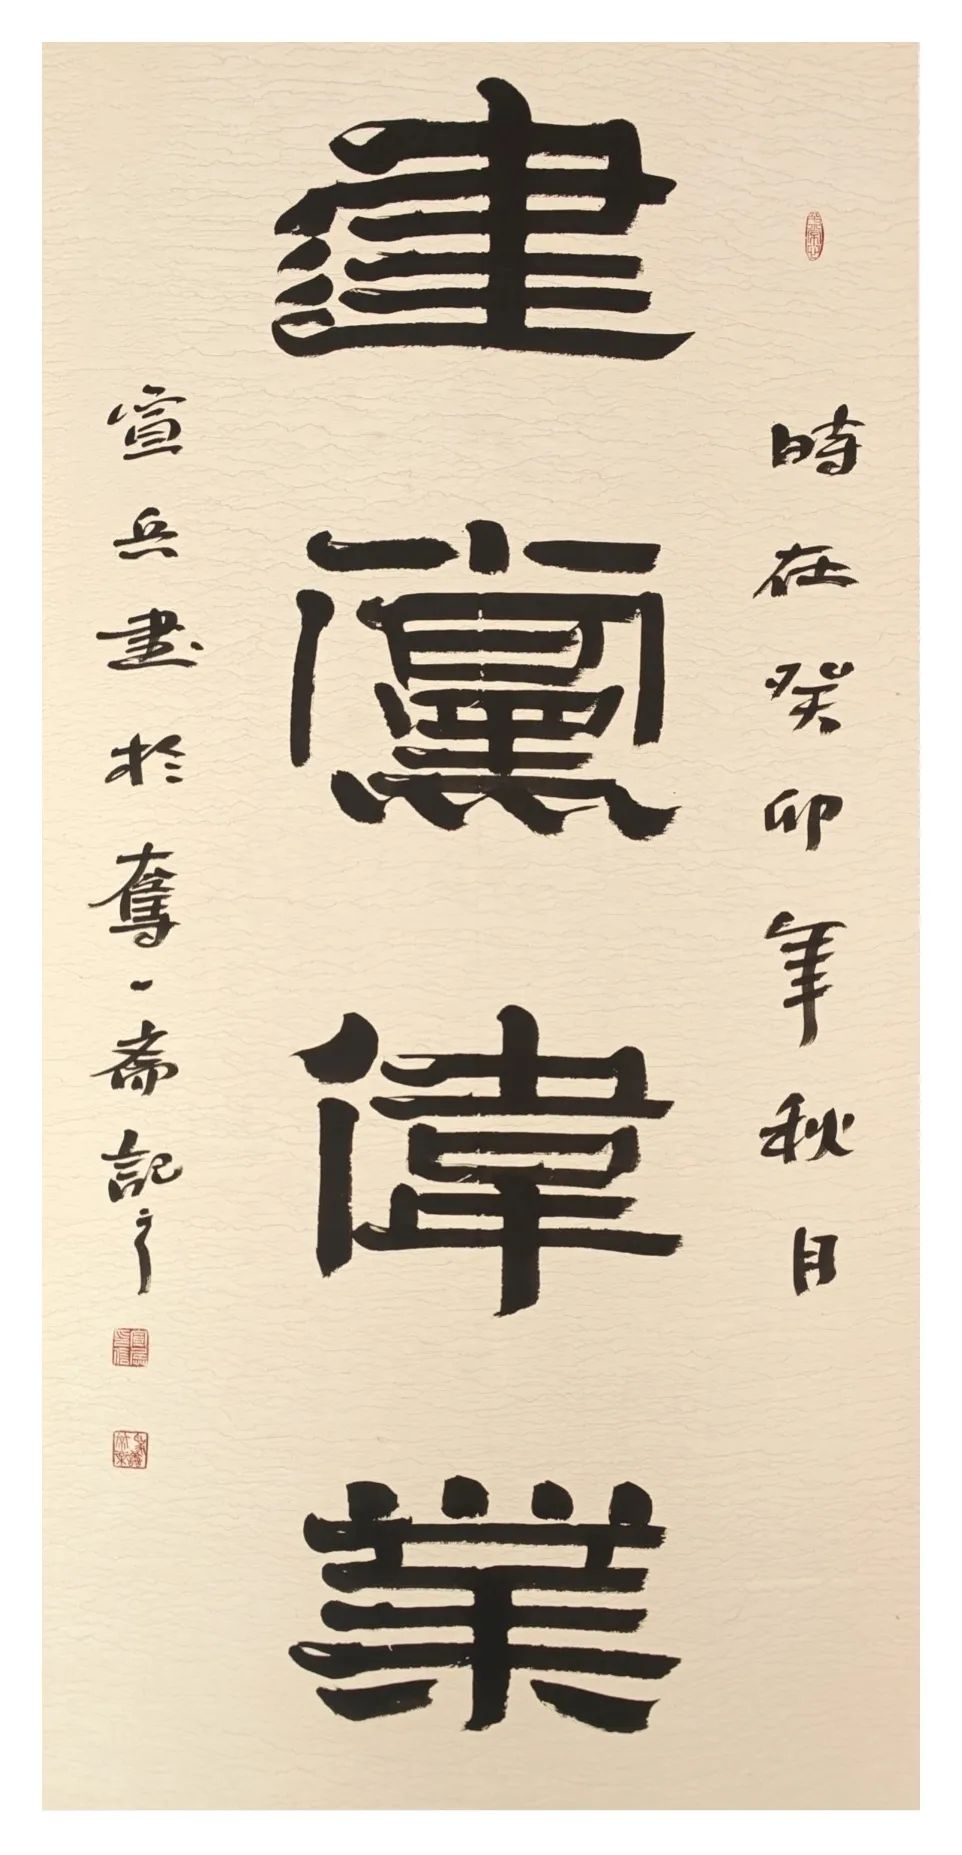 時在癸卯年秋月
建黨偉業
宣兵書於奪一齋記之